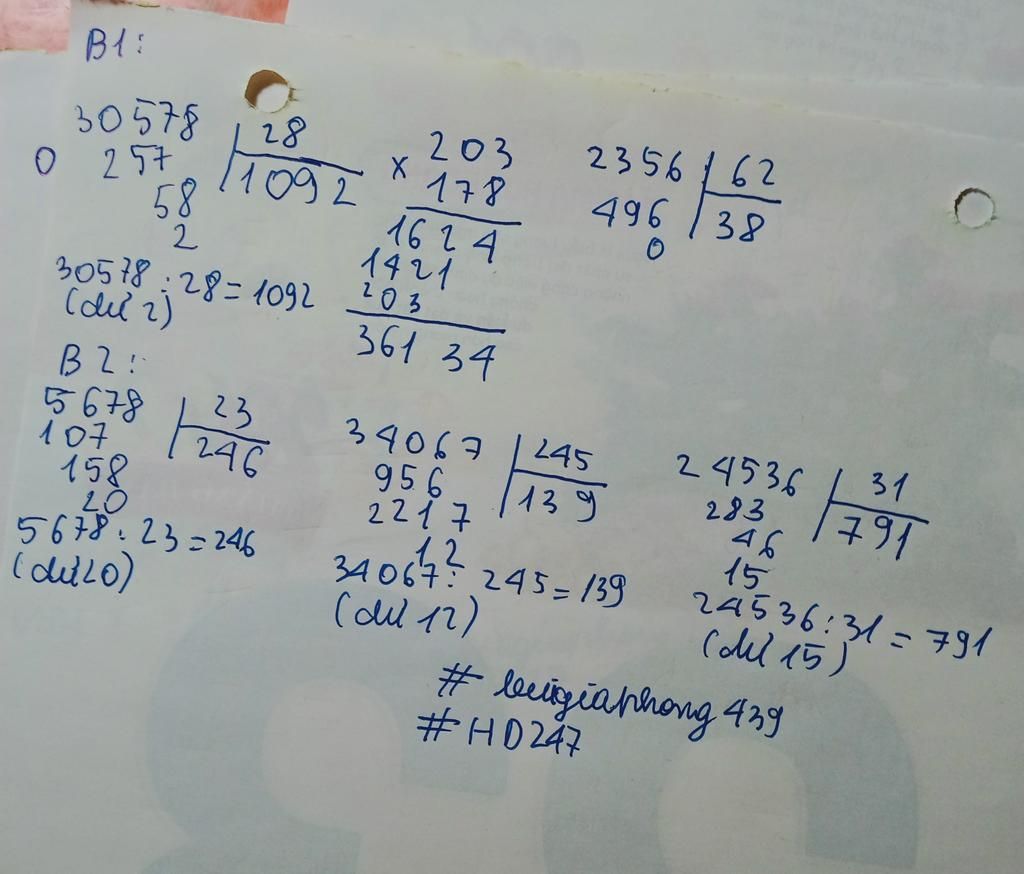 B1:
30578 28
0 257 1092
58
2
30578 : 28 = 1092
(dư 2)
203
x 178
1624
1421
203
36134
2356 62
496 38
0
B2:
5678 23
107 246
158
20
5678 : 23 = 246
(dư 20)
34067 245
956 139
2217
12
34067 : 245 = 139
(dư 12)
24536 31
283 791
46
15
24536 : 31 = 791
(dư 15)
# buigiaphong439
# HD247